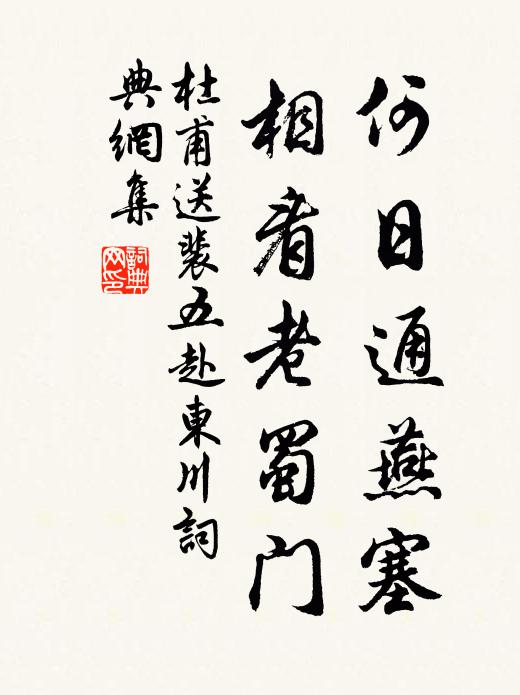 何日通燕塞
相看老蜀门
杜甫送裴五赴東川詞
典網集
詞典網印